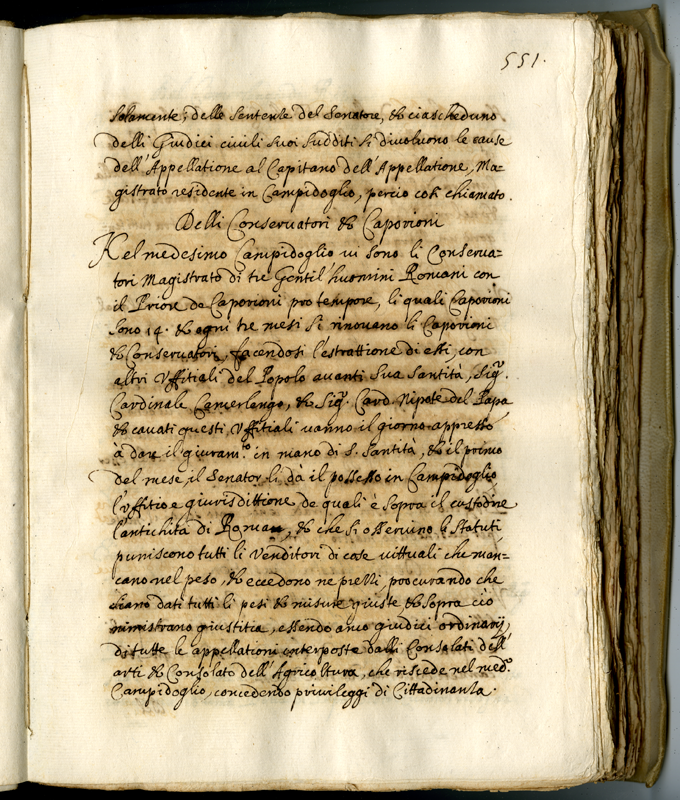 551.
solamente; delle sentenze del Senatore, & ciascheduno
delli Giudici civili suoi sudditi si divoluono le cause
dell'Appellatione al Capitano dell'Appellatione, Ma=
gistrato residente in Campidoglio, percio così chiamato.
Delli Conservatori & Caporioni
Nel medesimo Campidoglio vi sono li Conserva=
tori Magistrato di tre Gentil'huomini Romani con
il Priore de Caporioni pro tempore, li quali Caporioni
sono 14. & ogni tre mesi si rinovano li Caporioni
& Conservatori, facendosi l'estrattione di essi, con
altri Uffitiali del Popolo avanti Sua Santità, Sigr.
Cardinale Camerlengo, & Sigr. Card. Nipote del Papa
& cavati questi Uffitiali vanno il giorno appresso
à dare il giuramto. in mano di S. Santità, & il primo
del mese il Senator li dà il possesso in Campidoglio
l'uffitio e giurisdittione de quali è sopra il custodire
l'antichità di Roma, & che si osservino li Statuti
puniscono tutti li Venditori di cose vittuali che man=
cano nel peso, & eccedono ne prezzi procurando che
siano dati tutti li pesi & misure giuste & sopra ciò
ministrano giustitia, essendo anco giudici ordinarij
di tutte le appellationi interposte dalli Consolati dell'
arti & Consolato dell'Agricoltura, che risiede nel medo.
Campidoglio, concedendo privileggi di Cittadinanza.